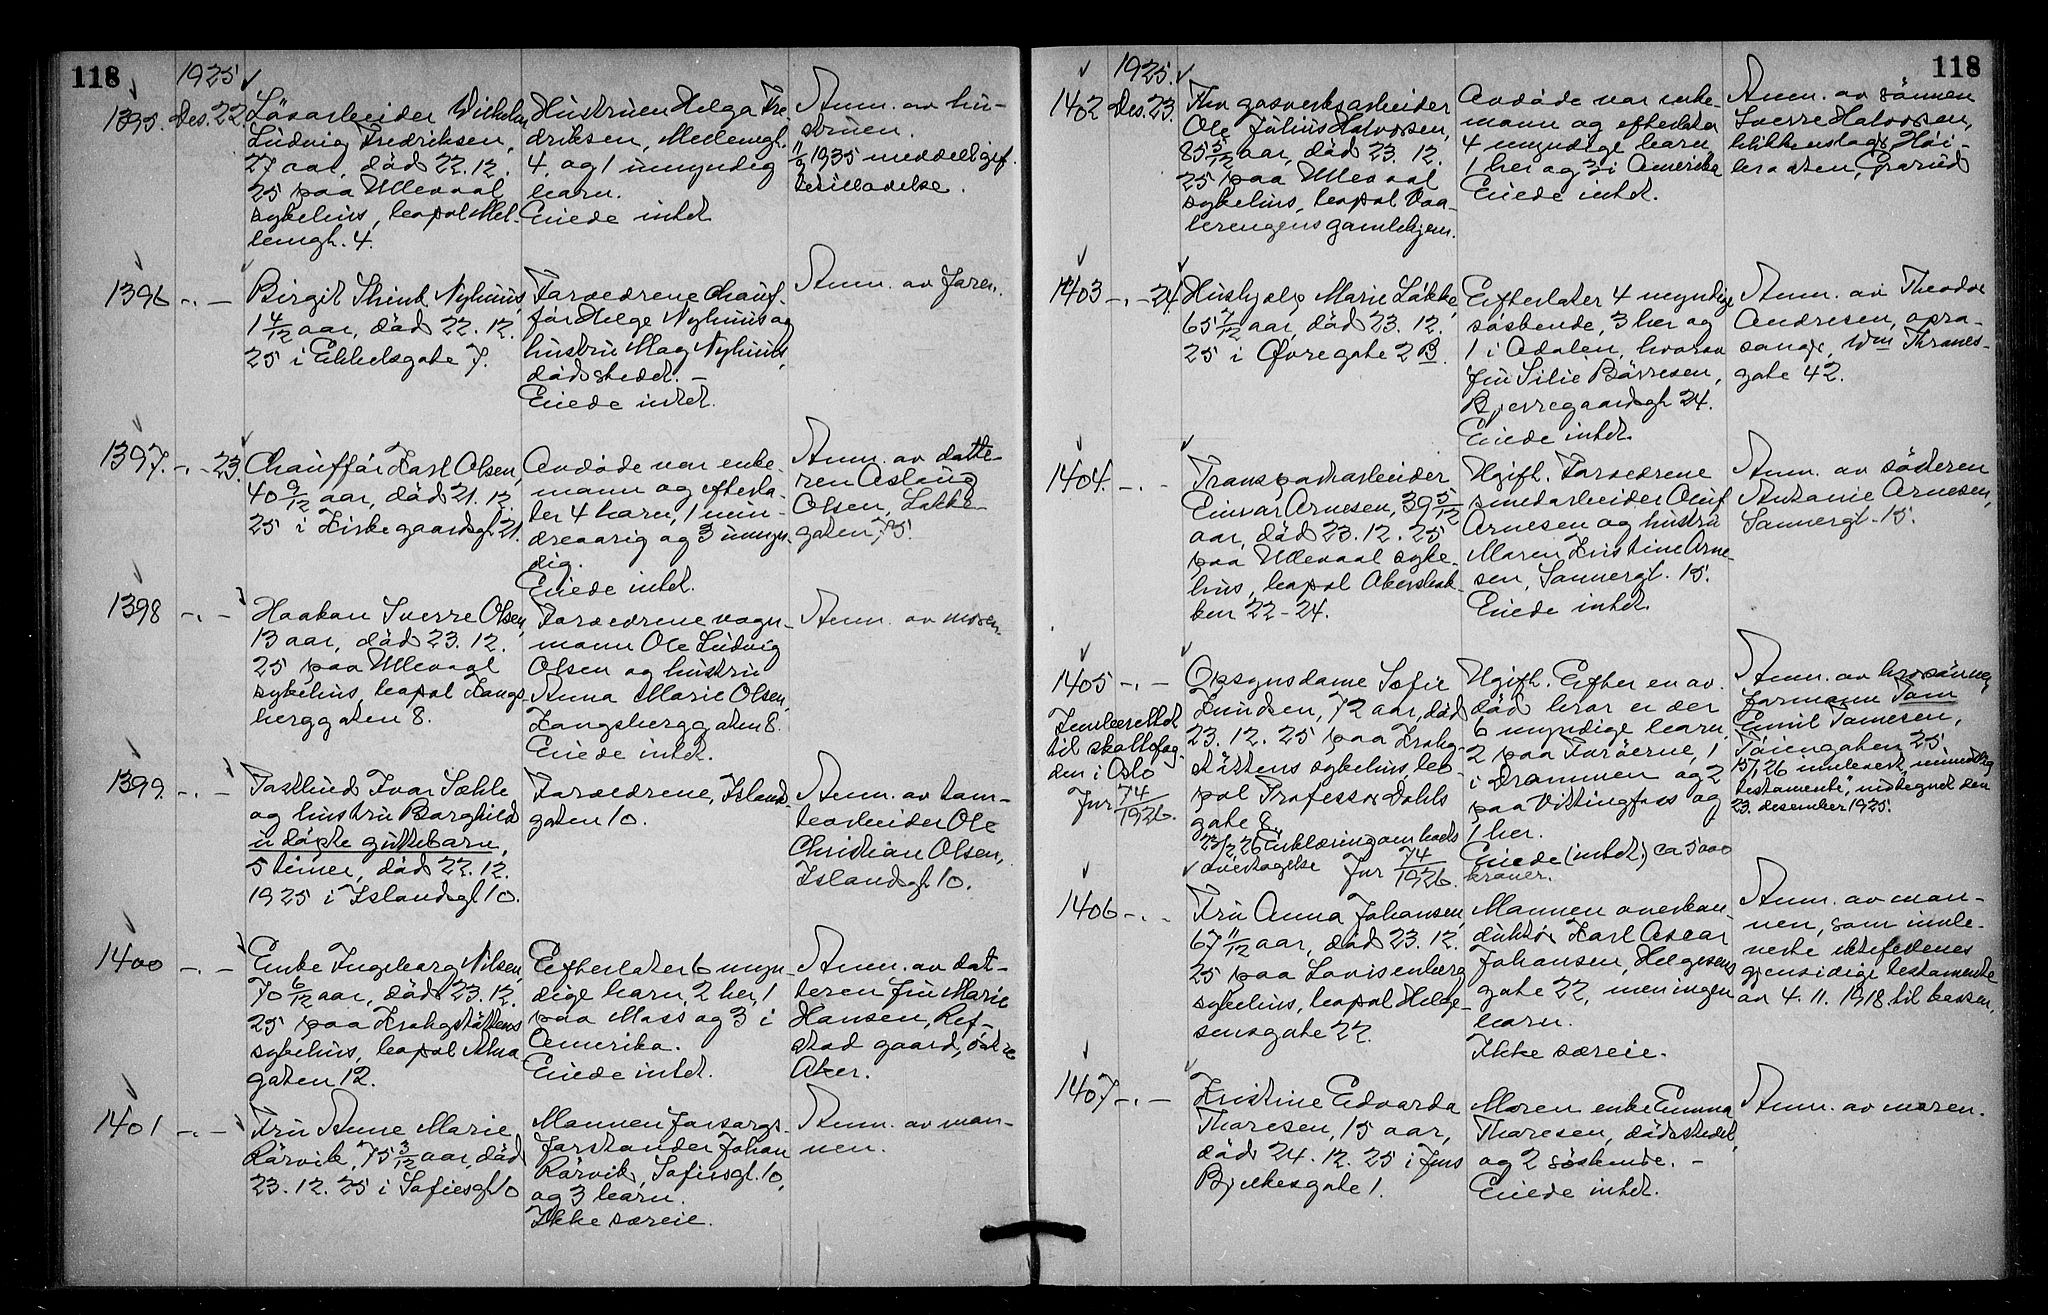 118
1925
1395. Des. 22.
Løsarbeider Wilhelm
Ludvig Fredriksen,
27 aar, død 22.12.
25 paa Ullevaal
sykehus, bopal Mel-
lemgt. 4.
Hustruen Helga Fre-
driksen, Mellemgt.
4. og 1 umyndig
barn.
Eiede intet
Anm. av hu-
struen.
1935 meddelt gif-
tetilladelse.
1396 -.-
Birgit Nyhuus,
1 4/12 aar, død 22.12.
25 i Ekkelsgate 7.
Forældrene Chauf-
før Helge Nyhuus og
hustru Mag Nyhuus,
dødsstedet. -
Eiede intet.
Anm. av faren.
1397. -.- 23.
Chauffør Karl Olsen,
40 9/12 aar, død 21.12.
25 i Kirkegaardsgt 21.
Avdøde var enke-
mann og efterla-
ter 4 barn, 1 min-
dreaarig og 3 umyn-
dig.
Eiede intet.
Anm. av datte-
ren Aslaug
Olsen, Løkke-
gaten 75.
1398 -.-
Haakon Sverre Olsen,
13 aar, død 23.12.
25 paa Ullevaal
sykehus, bopal Kongs-
berggaten 8.
Forældrene vogn-
mann Ole Ludvig
Olsen og hustru
Anna Marie Olsen,
Kongsberggaten 8.
Eiede intet.
Anm. av moren.
1399. -.-
Postbud Ivar Sæhle
og hustru Borghild
udøpte guttebarn,
5 timer, død 22.12.
1925 i Islandsgt 10.
Forældrene, Islands-
gaten 10.
Anm. av tom-
tearbeider Ole
Christian Olsen,
Islandsgt 10.
1400 -.-
Enke Ingeborg Nilsen,
70 6/12 aar, død 23.12.
25 paa Krohgstøttens
sykehus, bopal Alna-
gaten 12.
Efterlater 6 myn-
dige barn, 2 her, 1
paa Moss og 3 i
Amerika.
Eiede intet.
Anm. av dat-
teren fru Marie
Hansen, Ref-
stad gaard, østre
Aker.
1401 -.-
Fru Anne Marie
Rørvik, 75 3/12 aar, død
23.12.25 i Sofiesgt 10
Mannen forsorgs-
forstander Johan
Rørvik, Sofiesgt. 10,
og 3 barn.
Ikke særeie.
Anm. av man-
nen.
118
1925.
1402 Des. 23.
Fhv gasverksarbeider
Ole Julius Halvorsen,
85 5/12 aar, død 23.12.
25 paa Ullevaal
sykehus, bopal Vaa-
lerengens gamlehjem.
Avdøde var enke-
mann og efterlater
4 myndige barn,
1 her og 3 i Amerika
Eiede intet.
Anm. av sønnen
Sverre Halvorsen,
blikkenslager, Høi-
braaten, Grorud
1403 -.- 24.
Hushjelp Marie Løkke,
65 7/12 aar, død 23.12.
25 i Øvregate 2 B.
Efterlater 4 myndige
søskende, 3 her og
1 i Adalen, hvorav
fru Silie Børresen,
Bjerregaardsgt 24.
Eiede intet.
Anm. av Theodor
Andresen, opra-
sanger, Wm Thranes-
gate 42.
1404. -.-
Transportarbeider
Einar Arnesen, 39 5/12
aar, død 23.12.25
paa Ullevaal syke-
hus, bopal Akersbak-
ken 22-24.
Ugift. Forældrene
smedarbeider Oluf
Arnesen og hustru
Maren Kristine Arne-
sen, Sannergt. 15.
Eiede intet.
Anm. av søsteren
Antonie Arnesen,
Sannergt. 15.
1405 -.-
Innberettet
til skattefog-
den i Oslo
Jnr 74/1926.
Opsynsdame Sofie
Knudsen, 72 aar, død
23.12.25 paa Krohg-
støttens sykehus, bo-
pal Professor Dahls
gate 8.
23/2 26 Erklæring om boets
overtagelse Jnr 74/1926.
Ugift. Efter en av-
død bror er der
6 myndige barn,
2 paa Færøerne, 1
i Drammen og 2
paa Vittingfoss og
1 her.
Eiede (intet) ca 5000
kroner.
Anm. av brorsønnen,
formann Tom
Emil Tomesen,
Tøiengaten 25.
15/1 26 innlevert "muntlig
testamente", nedtegnet den
23. desember 1925.
1406 -.-
Fru Anna Johansen,
67 11/12 aar, død 23.12.
25 paa Lovisenberg
sykehus, bopal Helge-
sensgate 22.
Mannen overkon-
duktør Karl Oscar
Johansen, Helgesens
gate 22, men ingen
barn.
Ikke særeie.
Anm. av man-
nen, som innle-
verte ektefellenes
gjensidige testamente
av 4.11.1918 til kassen.
1407 -.-
Kristine Edvarda
Thoresen, 15 aar,
død 24.12.25 i Jens
Bjelkesgate 1.
Moren enke Emma
Thoresen, dødsstedet,
og 2 søskende. -
Eiede intet.
Anm. av moren.